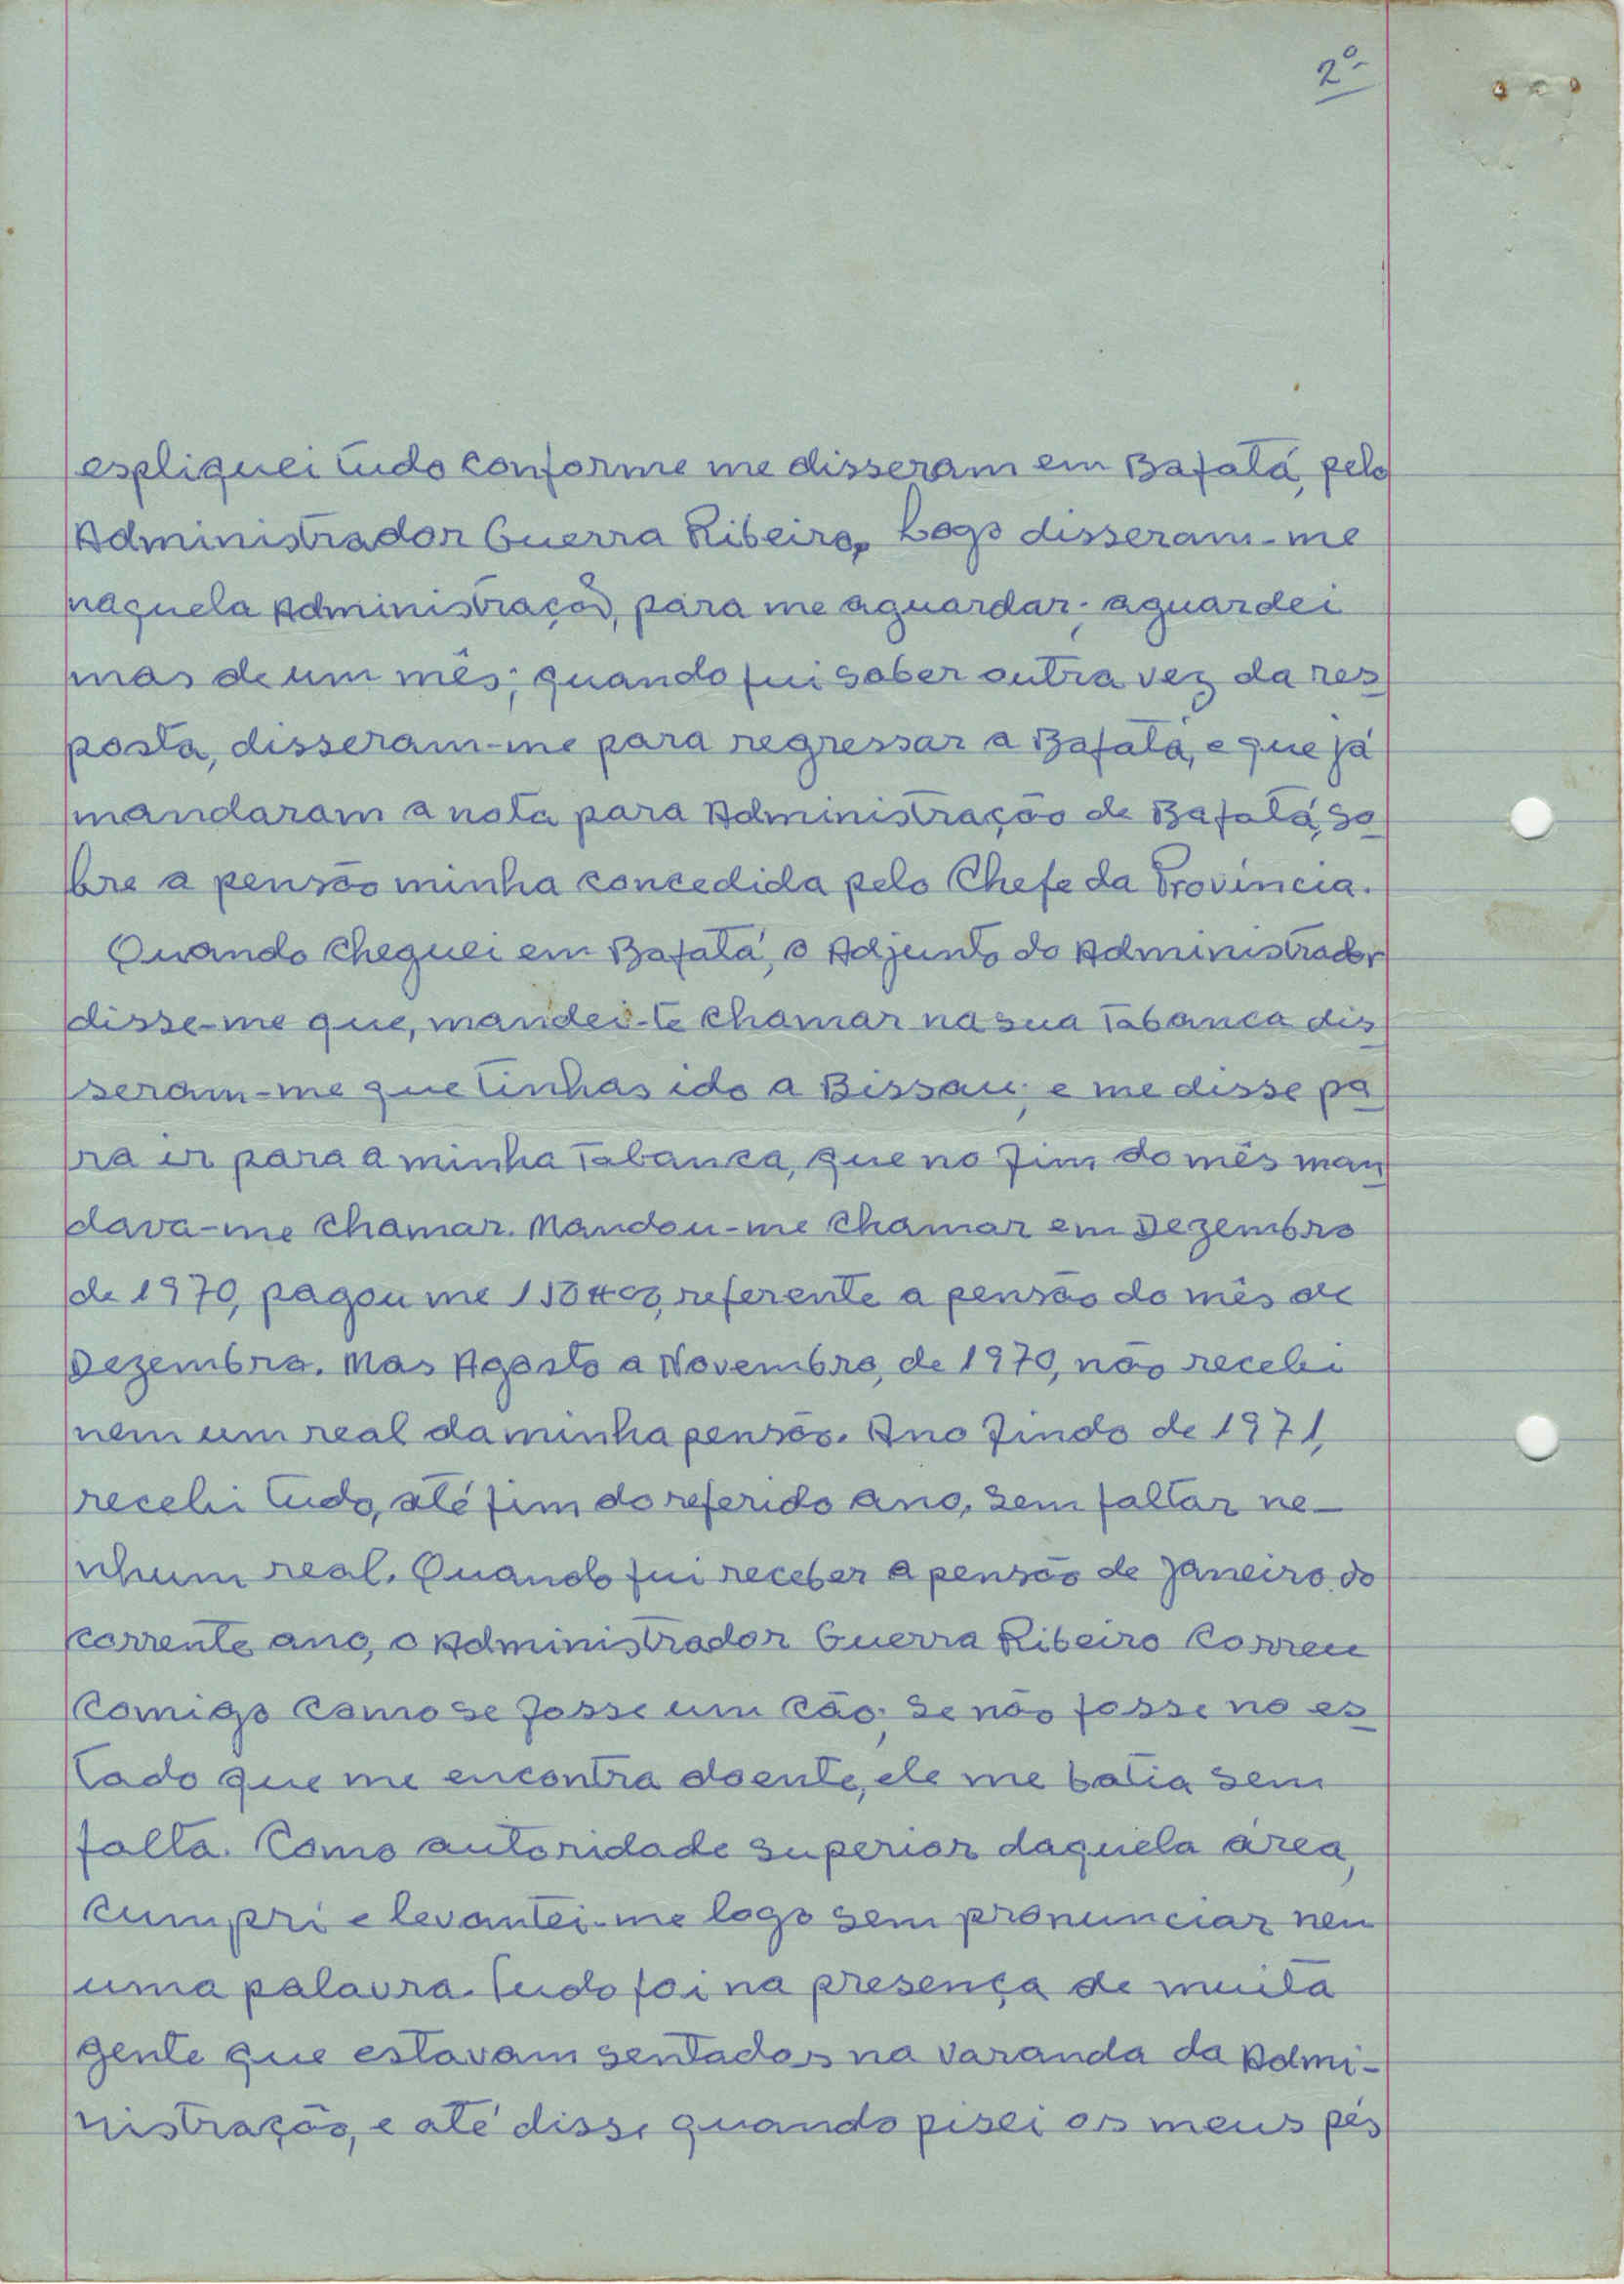 2º
espliquei tudo conforme me disseram em Bafatá, pelo
Administrador Guerra Ribeiro, Logo disseram-me
naquela Administração, para me aguardar; aguardei
mas de um mês; quando fui saber outra vez da res
posta, disseram-me para regressar a Bafatá, e que já
mandaram a nota para Administração de Bafatá, so
bre a pensão minha concedida pelo Chefe da Província.
Quando cheguei em Bafatá, o Adjunto do Administrador
disse-me que, mandei-te chamar na sua Tabanca dis
seram-me que tinhas ido a Bissau; e me disse pa
ra ir para a minha Tabanca, que no fim do mês man
dava-me chamar. Mandou-me chamar em Dezembro
de 1970, pagou me 150#00, referente a pensão do mês de
Dezembro. Mas Agosto a Novembro, de 1970, não recebi
nem um real da minha pensão. Ano findo de 1971,
recebi tudo, até fim do referido ano, sem faltar ne-
nhum real. Quando fui receber a pensão de Janeiro do
corrente ano, o Administrador Guerra Ribeiro correu
comigo como se fosse um cão; se não fosse no es
tado que me encontra doente, ele me batia sem
falta. Como autoridade superior daquela área,
cumpri e levantei-me logo sem pronunciar nem
uma palavra. Tudo foi na presença de muita
gente que estavam sentados na varanda da Admi-
nistração, e até disse quando pisei os meus pés